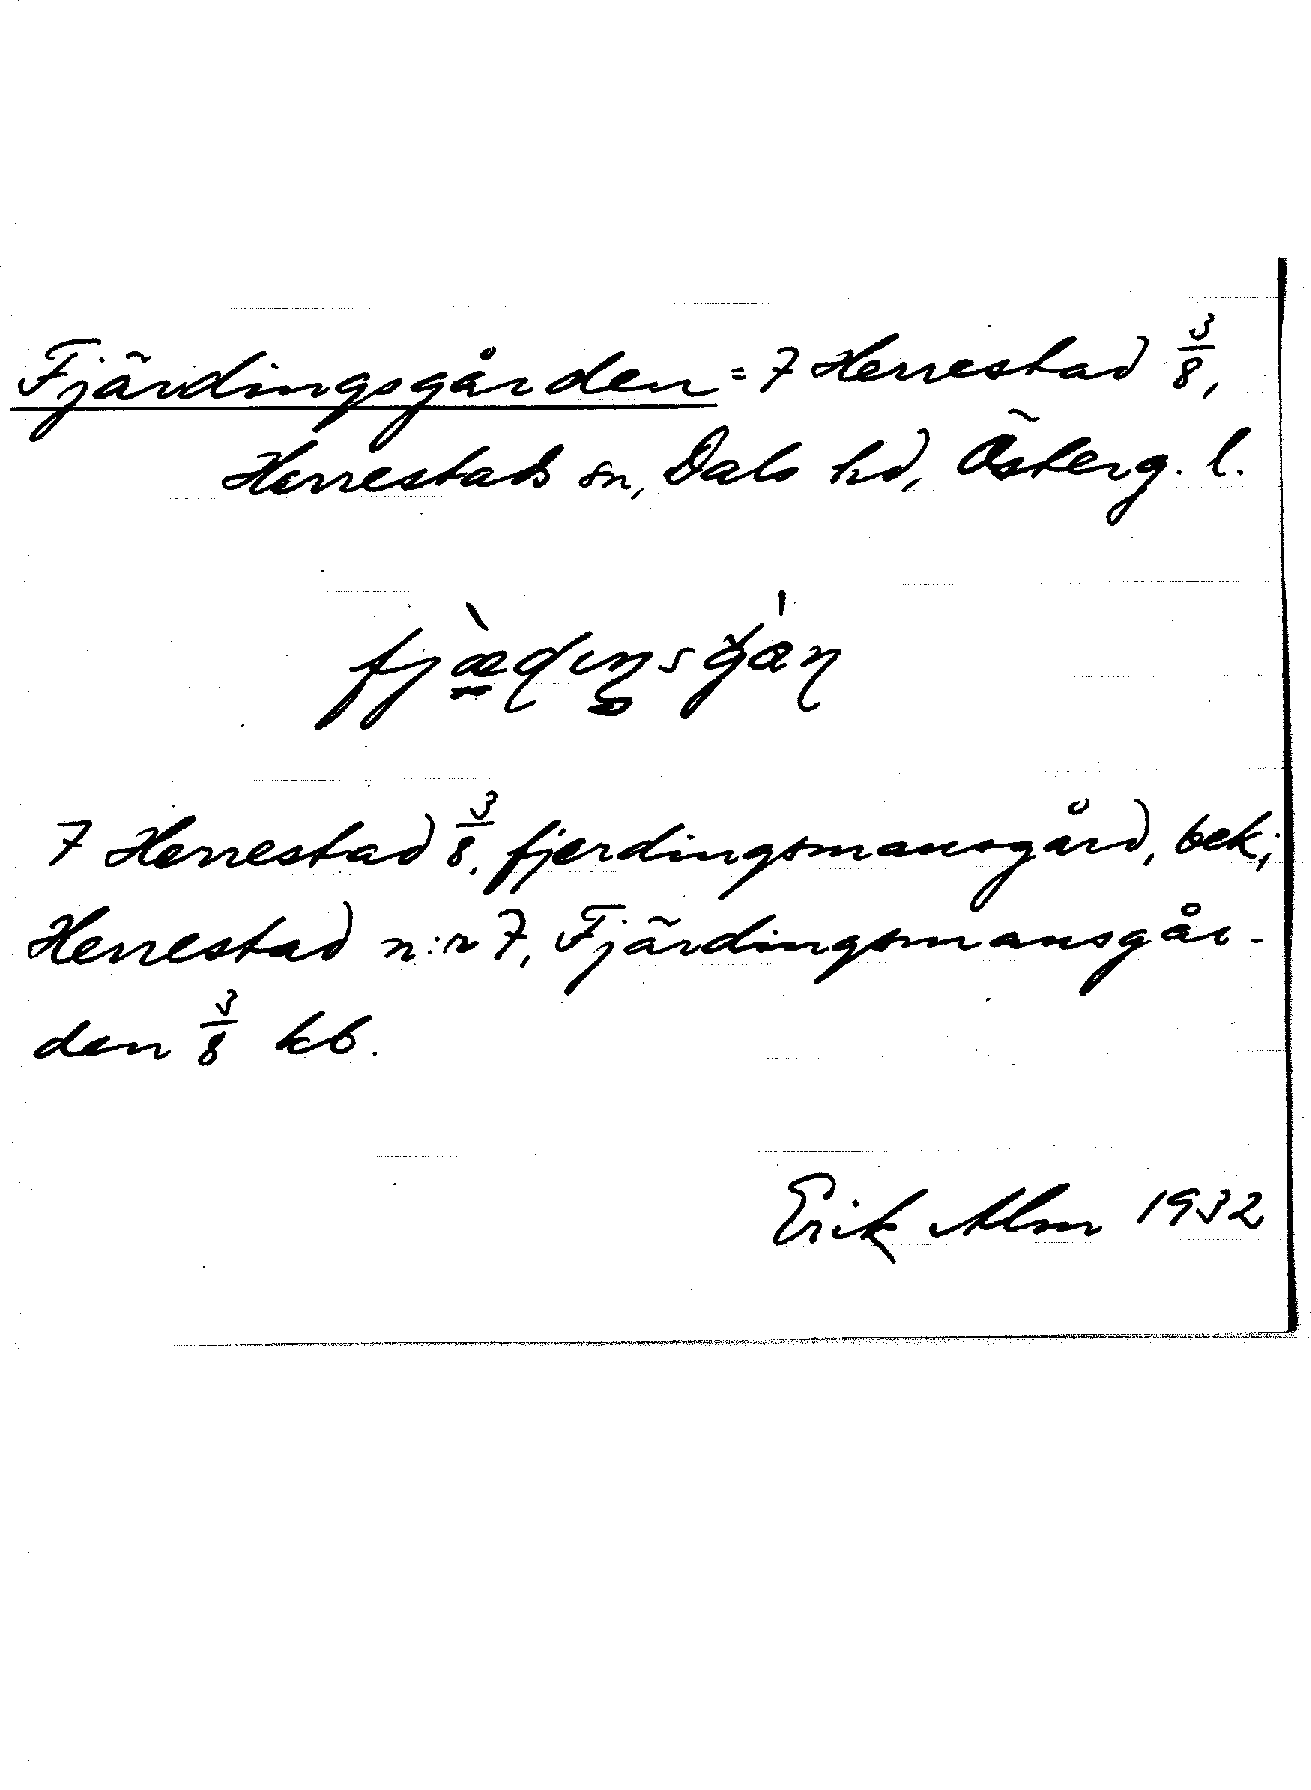 Fjärdingsgården = 7 Herrestad 3/8,
Herrestads sn, Dals hd, Österg. l.
7 Herrestad 3/8, fjerdingsmansgård, bek.;
Herrestad n:r 7, Fjärdingsmansgår-
den 3/8 kb.
Erik Alm 1932